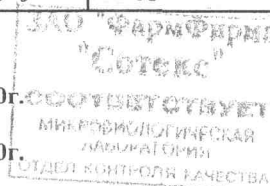 ЗАО "ФармФирма
"Сотекс"
0г.
СООТВЕТСТВУЕТ
МИКРОБИОЛОГИЧЕСКАЯ
0г.
ЛАБОРАТОРИЯ
ОТДЕЛ КОНТРОЛЯ КАЧЕСТВА